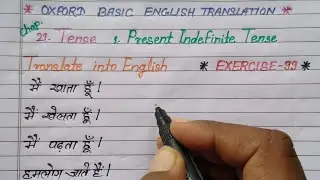 * OXFORD BASIC ENGLISH TRANSLATION *
Chap.
29. Tense 1. Present Indefinite Tense
Translate into English * EXERCISE-99 *
मैं खाता हूँ।
मैं खेलता हूँ।
मैं पढ़ता हूँ।
हमलोग जाते हैं।